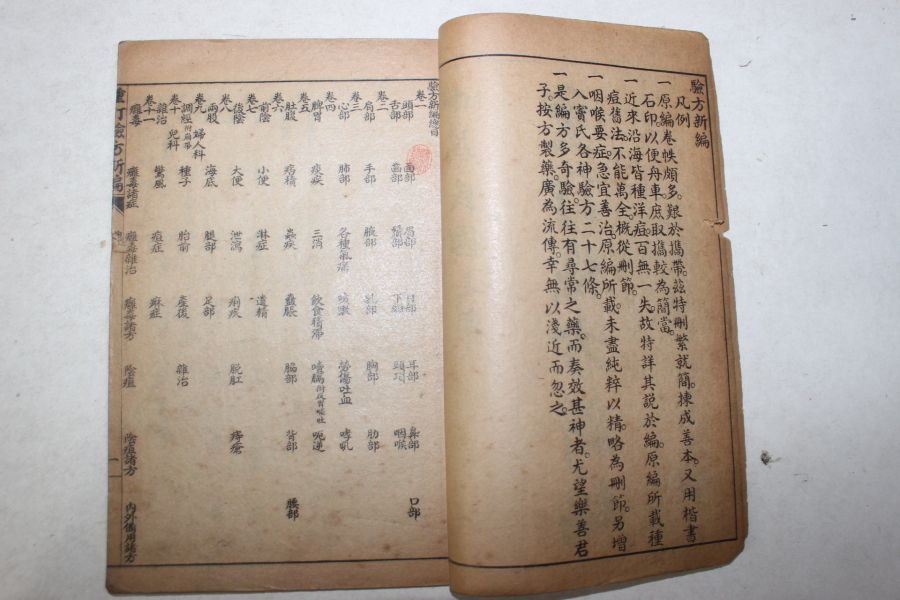 驗方新編
凡例
一原編卷帙頗多。艱於攜帶。茲特刪繁就簡。揀成善本。又用楷書
石印。以便舟車。庶取攜較為簡當。
一近來沿海皆種洋痘。百無一失。故特詳其説於編。原編所載種
痘舊法。不能萬全。概從刪節。
一咽喉要症。急宜善治。原編所載。未盡純粹以精。略為刪節。另增
入竇氏各神驗方二十七條。
一是編方多奇驗。往往有尋常之藥。而奏效甚神者。尤望樂善君
子。按方製藥。廣為流傳。幸無以淺近而忽之。
驗方新編總目
卷一
頭部 面部 眉部 目部 耳部 鼻部 口部
舌部 齒部 頸項 咽喉
卷二
肩部 手部 腋部 乳部 胸部 肋部
卷三
心部 肺部 各種氣痛 咳嗽 勞傷吐血 哮吼
卷四
脾胃 痰疾 三消 飲食積滯 噎膈附反胃嘔吐 呃逆
卷五
肚腹 痞積 蟲疾 蠱脹 腦部 背部 腰部
卷六
前陰 小便 淋症 遺精
卷七
後陰 大便 泄瀉 痢疾 脫肛 痔瘡
卷八
兩股 海底 腿部 足部
卷九 婦人科
調經 種子 胎前 產後 雜治
卷十 兒科
雜治 驚風 痘症 麻症
卷十一
癰毒 癰毒諸症 癰毒雜治 癰毒諸方 陰疽 陰疽諸方 內外備用諸方
重訂驗方新編
一